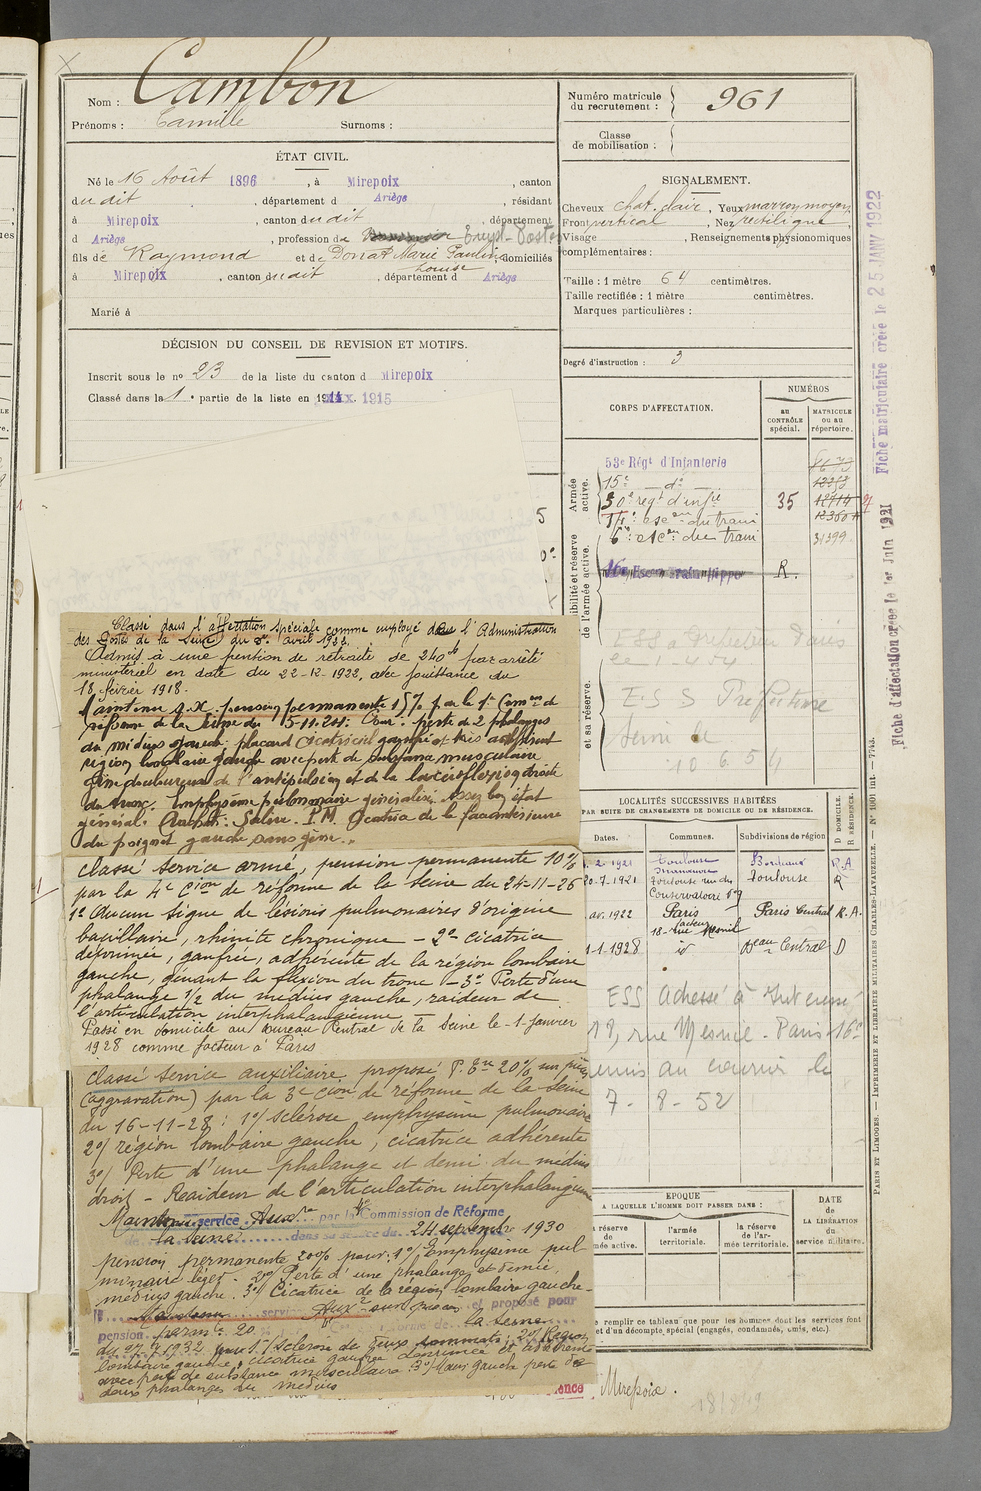 Nom : Cambon
Prénoms : Camille Surnoms :
Numéro matricule du recrutement : 961
Classe de mobilisation :
ÉTAT CIVIL.
Né le 16 Août 1896, à Mirepoix, canton
dudit, département d Ariège, résidant
à Mirepoix, canton dudit, département
d Ariège, profession de Empl. Postes
fils de Raymond et de Donat Marie Pauline Louise domiciliés
à Mirepoix, canton dudit, département d Ariège
Marié à
DÉCISION DU CONSEIL DE REVISION ET MOTIFS.
Inscrit sous le no 23 de la liste du canton d Mirepoix
Classé dans la 1e partie de la liste en 1915
SIGNALEMENT.
Cheveux chat. clair, Yeux marron moyen
Front vertical, Nez rectiligne
Visage , Renseignements physionomiques
complémentaires :
Taille : 1 mètre 64 centimètres.
Taille rectifiée : 1 mètre centimètres.
Marques particulières :
Degré d'instruction : 3
CORPS D'AFFECTATION.
NUMÉROS
AU CONTRÔLE spécial.
MATRICULE ou au répertoire.
Armée active.
53e Régt d'Infanterie
15e d°
30e régt d'infie 35
esc on du train
6e : esc on du train 31399
16e R.
ibilité et réserve de l'armée active.
et sa réserve.
ESS Préfecture
Seine le
10 6 54
LOCALITÉS SUCCESSIVES HABITÉES
PAR SUITE DE CHANGEMENTS DE DOMICILE OU DE RÉSIDENCE.
Dates. Communes. Subdivisions de région
D DOMICILE. R RÉSIDENCE.
2-1921 Toulouse Bordeaux R.A
20-7-1921 Toulouse rue du Conservatoire no 9 Toulouse R
av. 1922 Paris facteur 18 rue Mesnil Paris Central R.A.
1-1-1928 id Beau Central D
ESS Adressé à Intéressé
19, rue Mesnil - Paris 16e
remis au courrier le
7 - 8 - 52
EPOQUE
A LAQUELLE L'HOMME DOIT PASSER DANS :
la réserve de l'armée active.
l'armée territoriale.
la réserve de l'armée territoriale.
DATE de LA LIBÉRATION du service militaire.
e remplir ce tableau que pour les hommes dont les services font
et d'un décompte spécial (engagés, condamnés, omis, etc.).
Mirepoix.
Fiche d'affectation créée le 1er Juin 1921
Fiche matriculaire créée le 25 JANV 1922
PARIS ET LIMOGES. — IMPRIMERIE ET LIBRAIRIE MILITAIRES CHARLES-LAVAUZELLE. — N° 1801 int. — 7743.
Classé dans l'affectation spéciale comme employé dans l'Administration
des Postes de la Seine du avril 1922.
Admis à une pension de retraite de 240 fr par arrêté
ministériel en date du 22-12-1922, avec jouissance du
18 février 1918.
Maintenu s.x. pension permanente 15% par la 1e Comon de
réforme de la Seine du 15-11-24 : perte de 2 phalanges
du médius gauche, placard cicatriciel gaufré et très adhérent
région lombaire gauche avec perte de substance musculaire
gêne douloureuse de l'antépulsion et de la latéroflexion droite
du tronc. Emphysème pulmonaire généralisé. Assez bon état
général. Salive. P.M. Cicatrice de la face antérieure
du poignet gauche sans gêne.
classé service armé, pension permanente 10%
par la 4e Cion de réforme de la Seine du 24-11-26
1° Aucun signe de lésions pulmonaires d'origine
bacillaire, rhinite chronique - 2° cicatrice
déprimée, gaufrée, adhérente de la région lombaire
gauche, gênant la flexion du tronc - 3° Perte d'une
phalange 1/2 du médius gauche, raideur de
l'articulation interphalangienne -
Passé en domicile au bureau Central de la Seine le 1 janvier
1928 comme facteur à Paris
classé service auxiliaire proposé P. Pte 20% sur pièces
(aggravation) par la 3e cion de réforme de la Seine
du 16-11-28 : 1°/ sclérose emphysème pulmonaire
2°/ région lombaire gauche, cicatrice adhérente
3°/ Perte d'une phalange et demi du médius
droit - Raideur de l'articulation interphalangienne
Maintenu service Auxre par la Commission de Réforme
de la Seine dans sa séance du 24 septembre 1930
pension permanente 20% pour : 1°/ Emphysème pul
monaire léger - 2°/ Perte d'une phalange et demie,
médius gauche. 3°/ Cicatrice de la région lombaire gauche -
Maintenu service Aux re sur pièces et proposé pour
pension perman te 20 réforme de la Seine
du 27.7.1932 pour 1°/ Sclérose de deux sommets ; 2°/ Région
lombaire gauche, cicatrice gaufrée déprimée et adhérente
avec perte de substance musculaire 3°/ Main gauche perte de
deux phalanges du médius